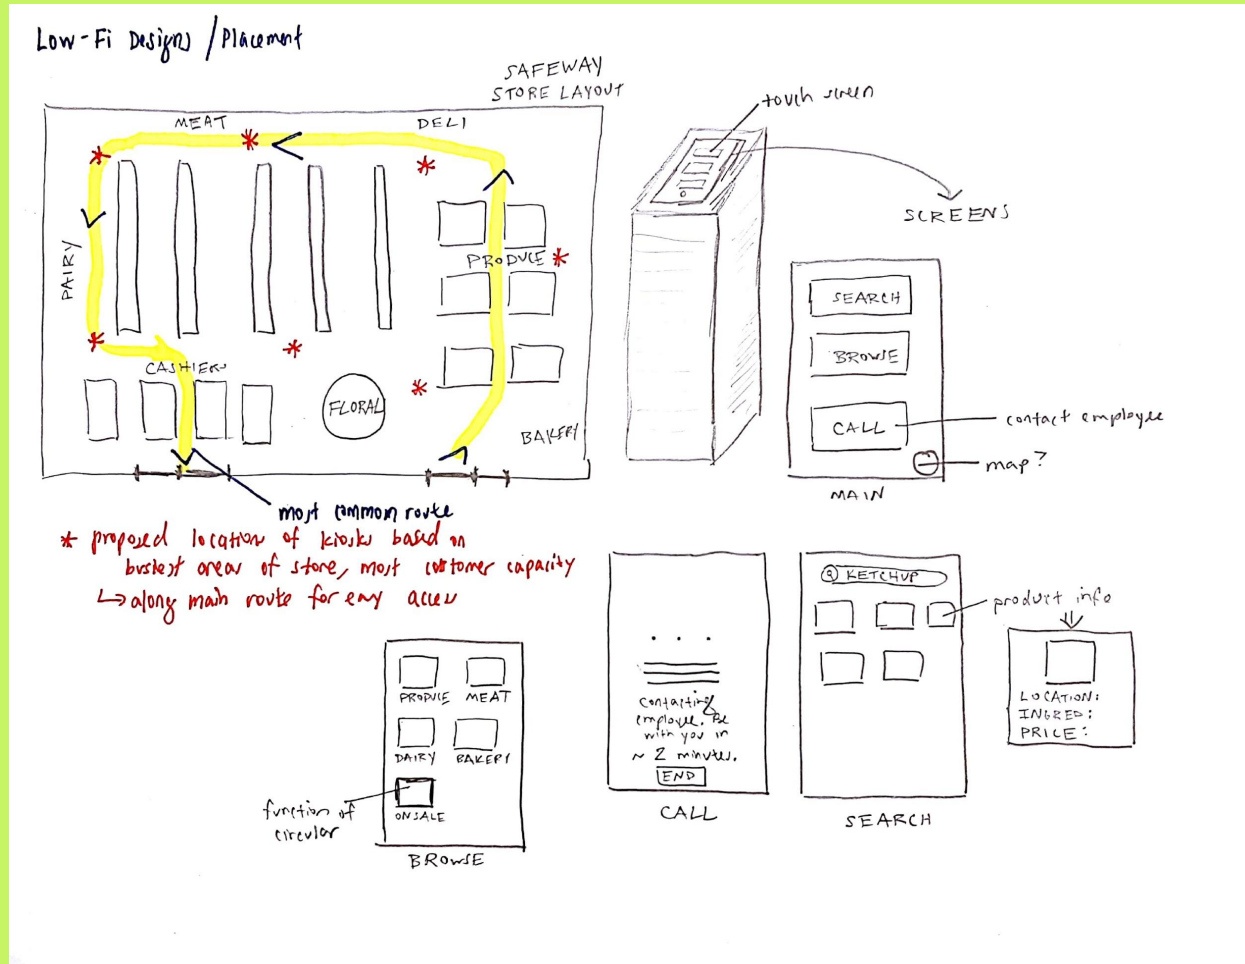 Low-Fi Designs / Placement
SAFEWAY
STORE LAYOUT
MEAT
DELI
DAIRY
PRODUCE
CASHIERS
FLORAL
BAKERY
most common route
* proposed location of kiosks based on
busiest areas of store, most customer capacity
↳ along main route for easy access
touch screen
SCREENS
SEARCH
BROWSE
CALL
contact employee
map?
MAIN
PRODUCE MEAT
DAIRY BAKERY
ON SALE
function of
circular
BROWSE
. . .
Contacting
employee. Be
with you in
~ 2 minutes.
END
CALL
KETCHUP
product info
SEARCH
LOCATION:
INGRED:
PRICE: